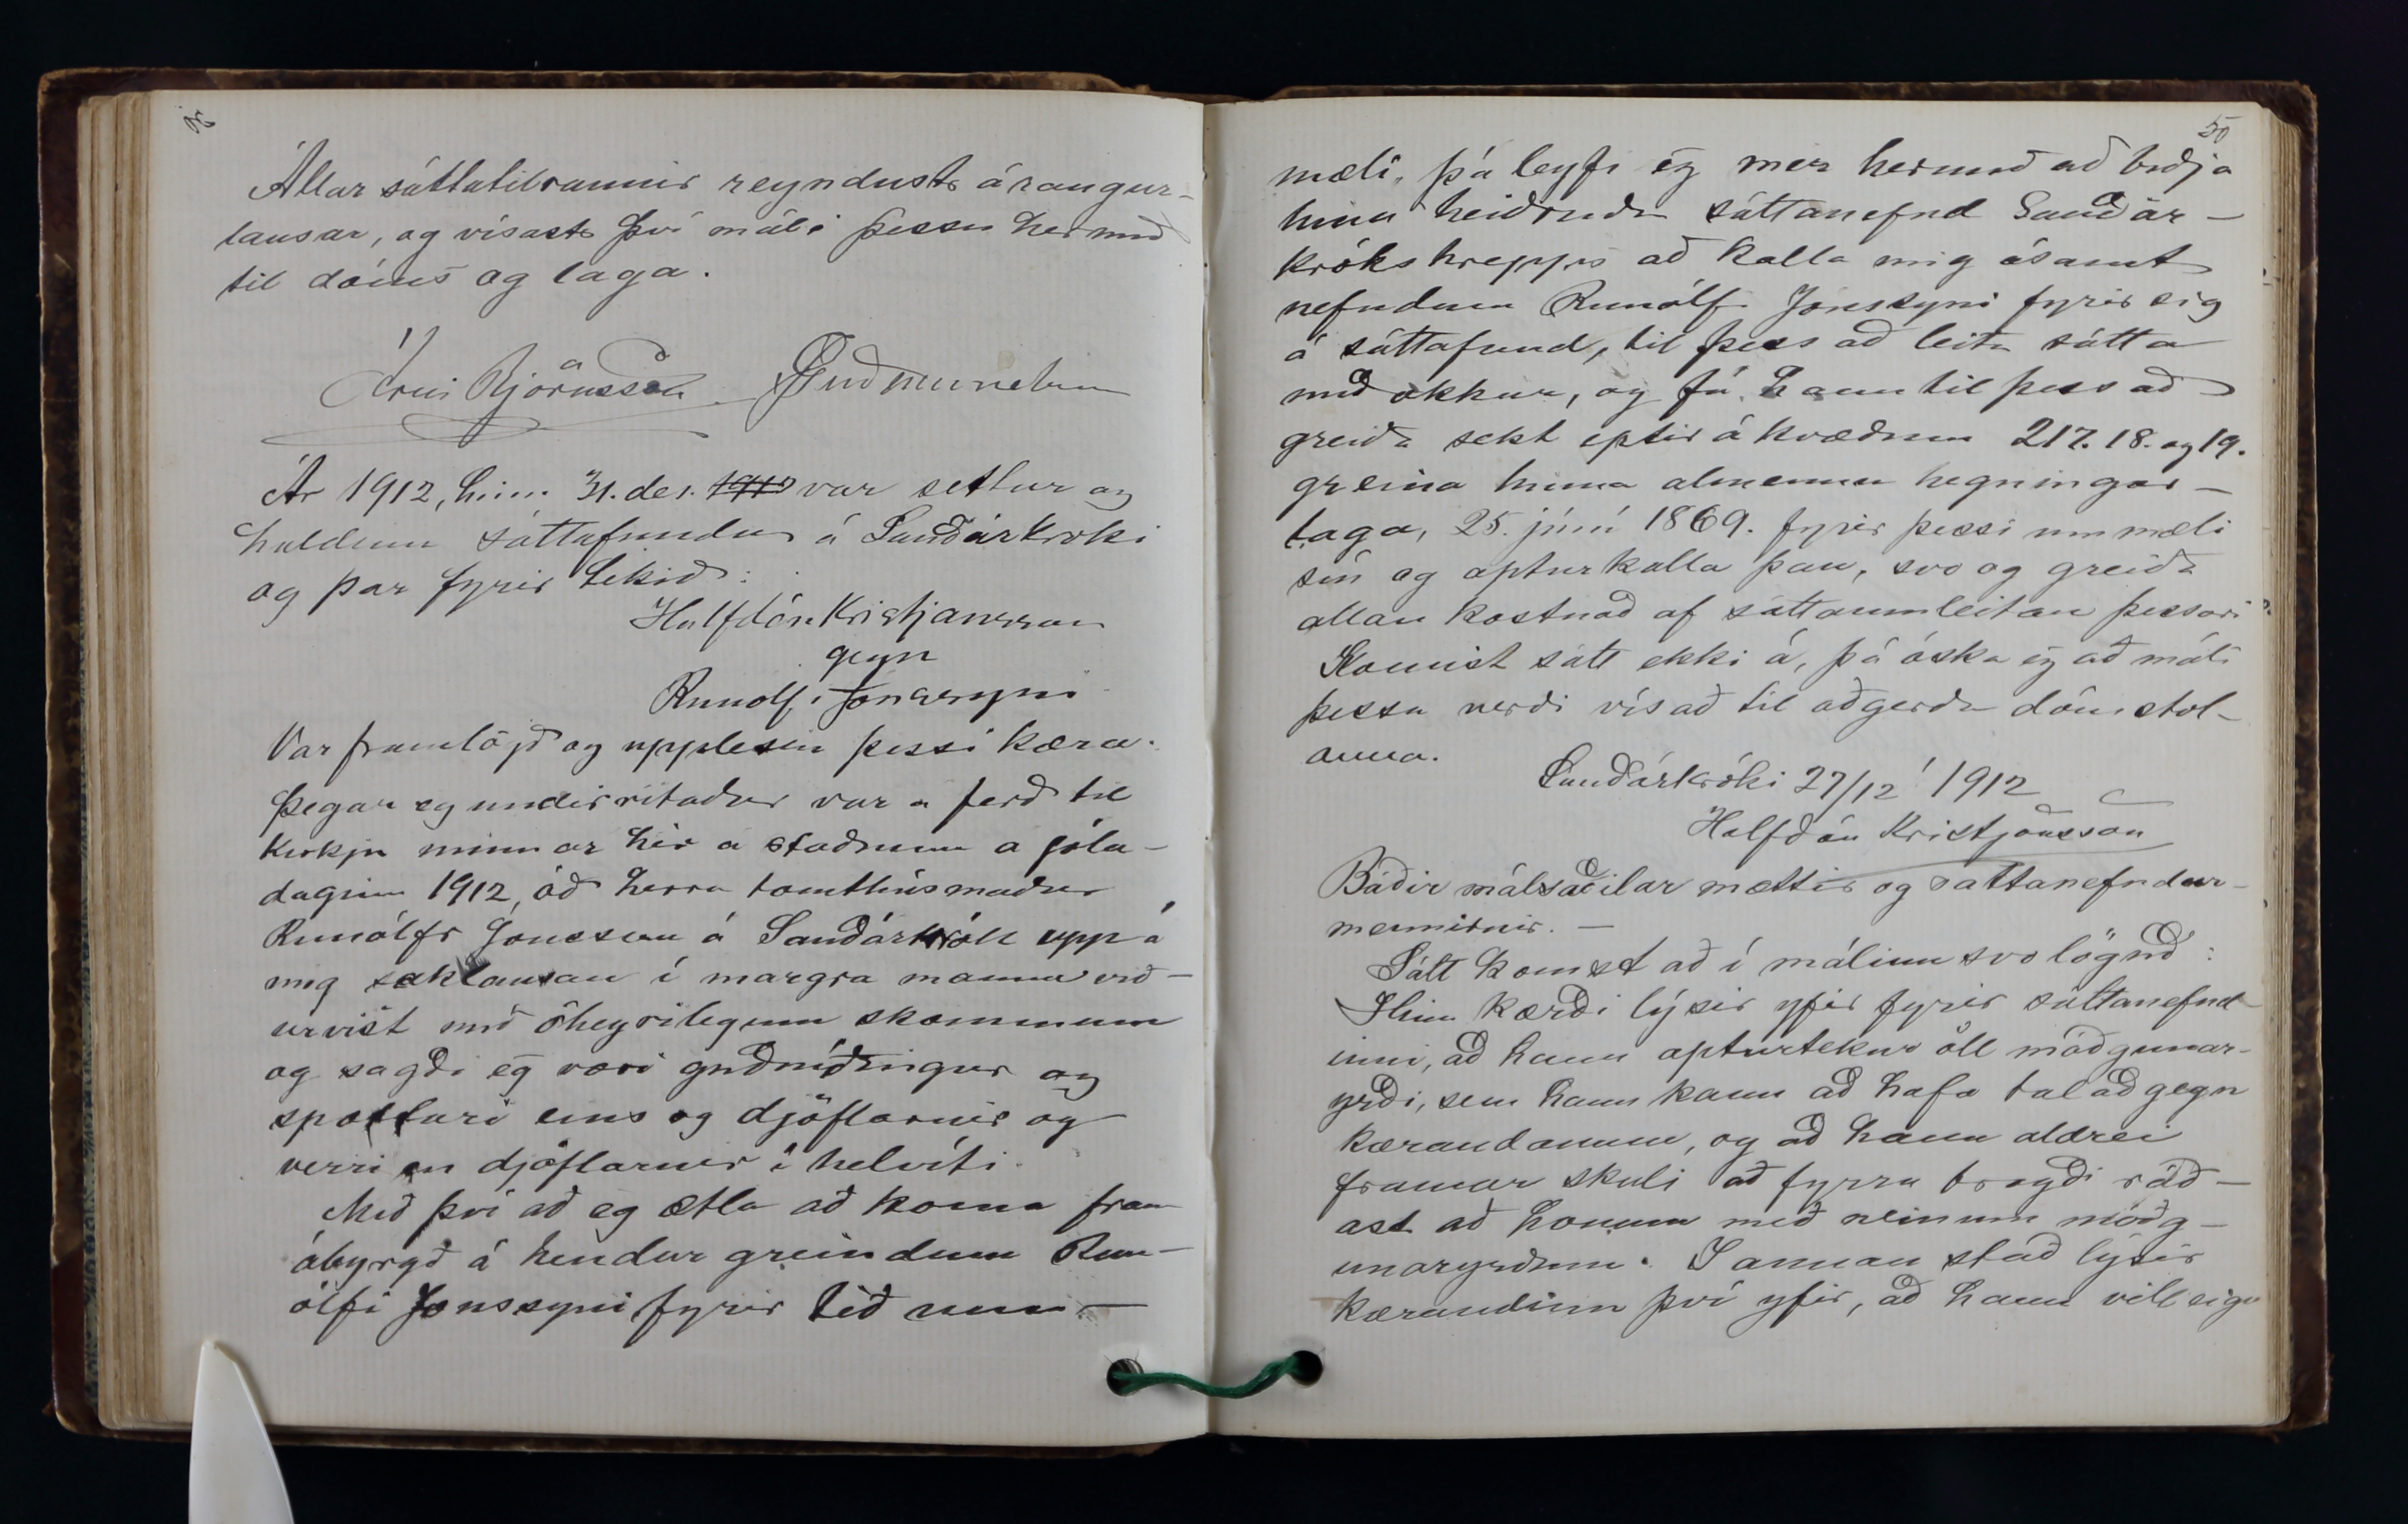 Allar sáttatilraunir reyndust árangur-
lausar, og vísast því máli þessu hermeð
til dóms og laga.
Árni Björnsson
Ár 1912, hinn 31. des. 1912 var settur og
haldinn sáttafundur á Sauðárkróki
og þar fyrir tekið:
Halfdán Kristjansson
gegn
Runolfi Jónssyni
Var framlögð og upplesin þessi kæra.
Þegar eg undirritaður var a ferð til
kirkju minnar hér a staðnum a jóla-
daginn 1912, óð herra tomthúsmaður
Runólfr Jónsson á Sauðárkrók upp á
mig saklausan í margra manna við-
urvist með óheyrilegum skömmum
og sagði eg væri guðníðingur og
spottari eins og djöflarnir og
verri en djöflarnir í helvíti.
Með því að eg ætla að koma fram
ábyrgð á hendur greindum Run-
ólfi Jonssyni fyrir téð um-
50
mæli, þá leyfi eg mér hermeð að biðja
hina heiðruðu sáttanefnd Sauðár-
krókshrepps að kalla mig ásamt
nefndum Runólfi Jónssyni fyrir sig
á sáttafund, til þess að leita sátta
með okkur, og fá hann til þess að
greiða sekt eptir ákvæðum 217. 18. og 19.
greina hinna almennu hegningar-
laga, 25. júní 1869. fyrir þessi ummæli
sín og apturkalla þau, svo og greiða
allan kostnað af sáttaumleitan þessari
Komist sátt ekki á, þá óska eg að máli
þessu verði vísað til aðgerða dómstol-
anna.
Sauðárkróki 27/12 1912
Halfdán Kristjánsson
Báðir málsaðilar mættir og sattanefndar-
mennirnir. -
Sátt komst að í málinu svo löguð:
Hinn kærði lýsir yfir fyrir sáttanefnd-
inni, að hann apturtekur öll móðgunar-
yrði, sem hann kann að hafa talað gegn
kærandanum, og að hann aldrei
framar skuli að fyrra bragði ráð-
ast að honum með neinum móðg-
unaryrðum. I annan stað lýsir
kærandinn því yfir, að hann vill eigi